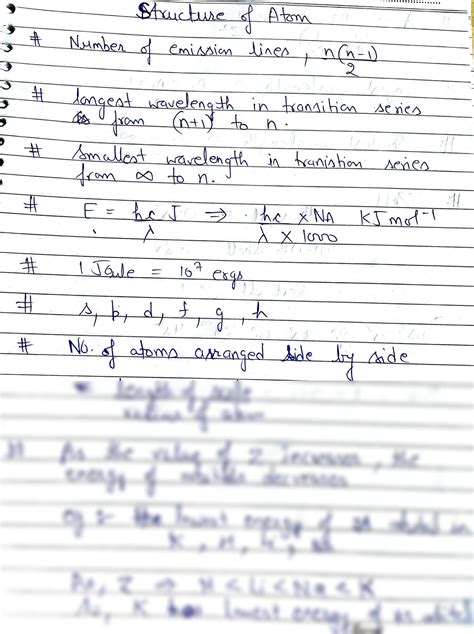 Structure of Atom
# Number of emission lines, n(n-1)/2
# longest wavelength in transition series
from (n+1) to n.
# Smallest wavelength in tranistion series
from ∞ to n.
# E = hc/λ J ⇒ hc × NA / λ × 1000 KJ mol⁻¹
# 1 Joule = 10⁷ ergs
# s, p, d, f, g, h
# No. of atoms arranged side by side
length of
radius of atom
# As the value of Z increases, the
energy of orbitals decreases
eg :- the lowest energy of in
K, H, Li,
As, Z ⇒ H < Li < Na < K
So, K has lowest energy of